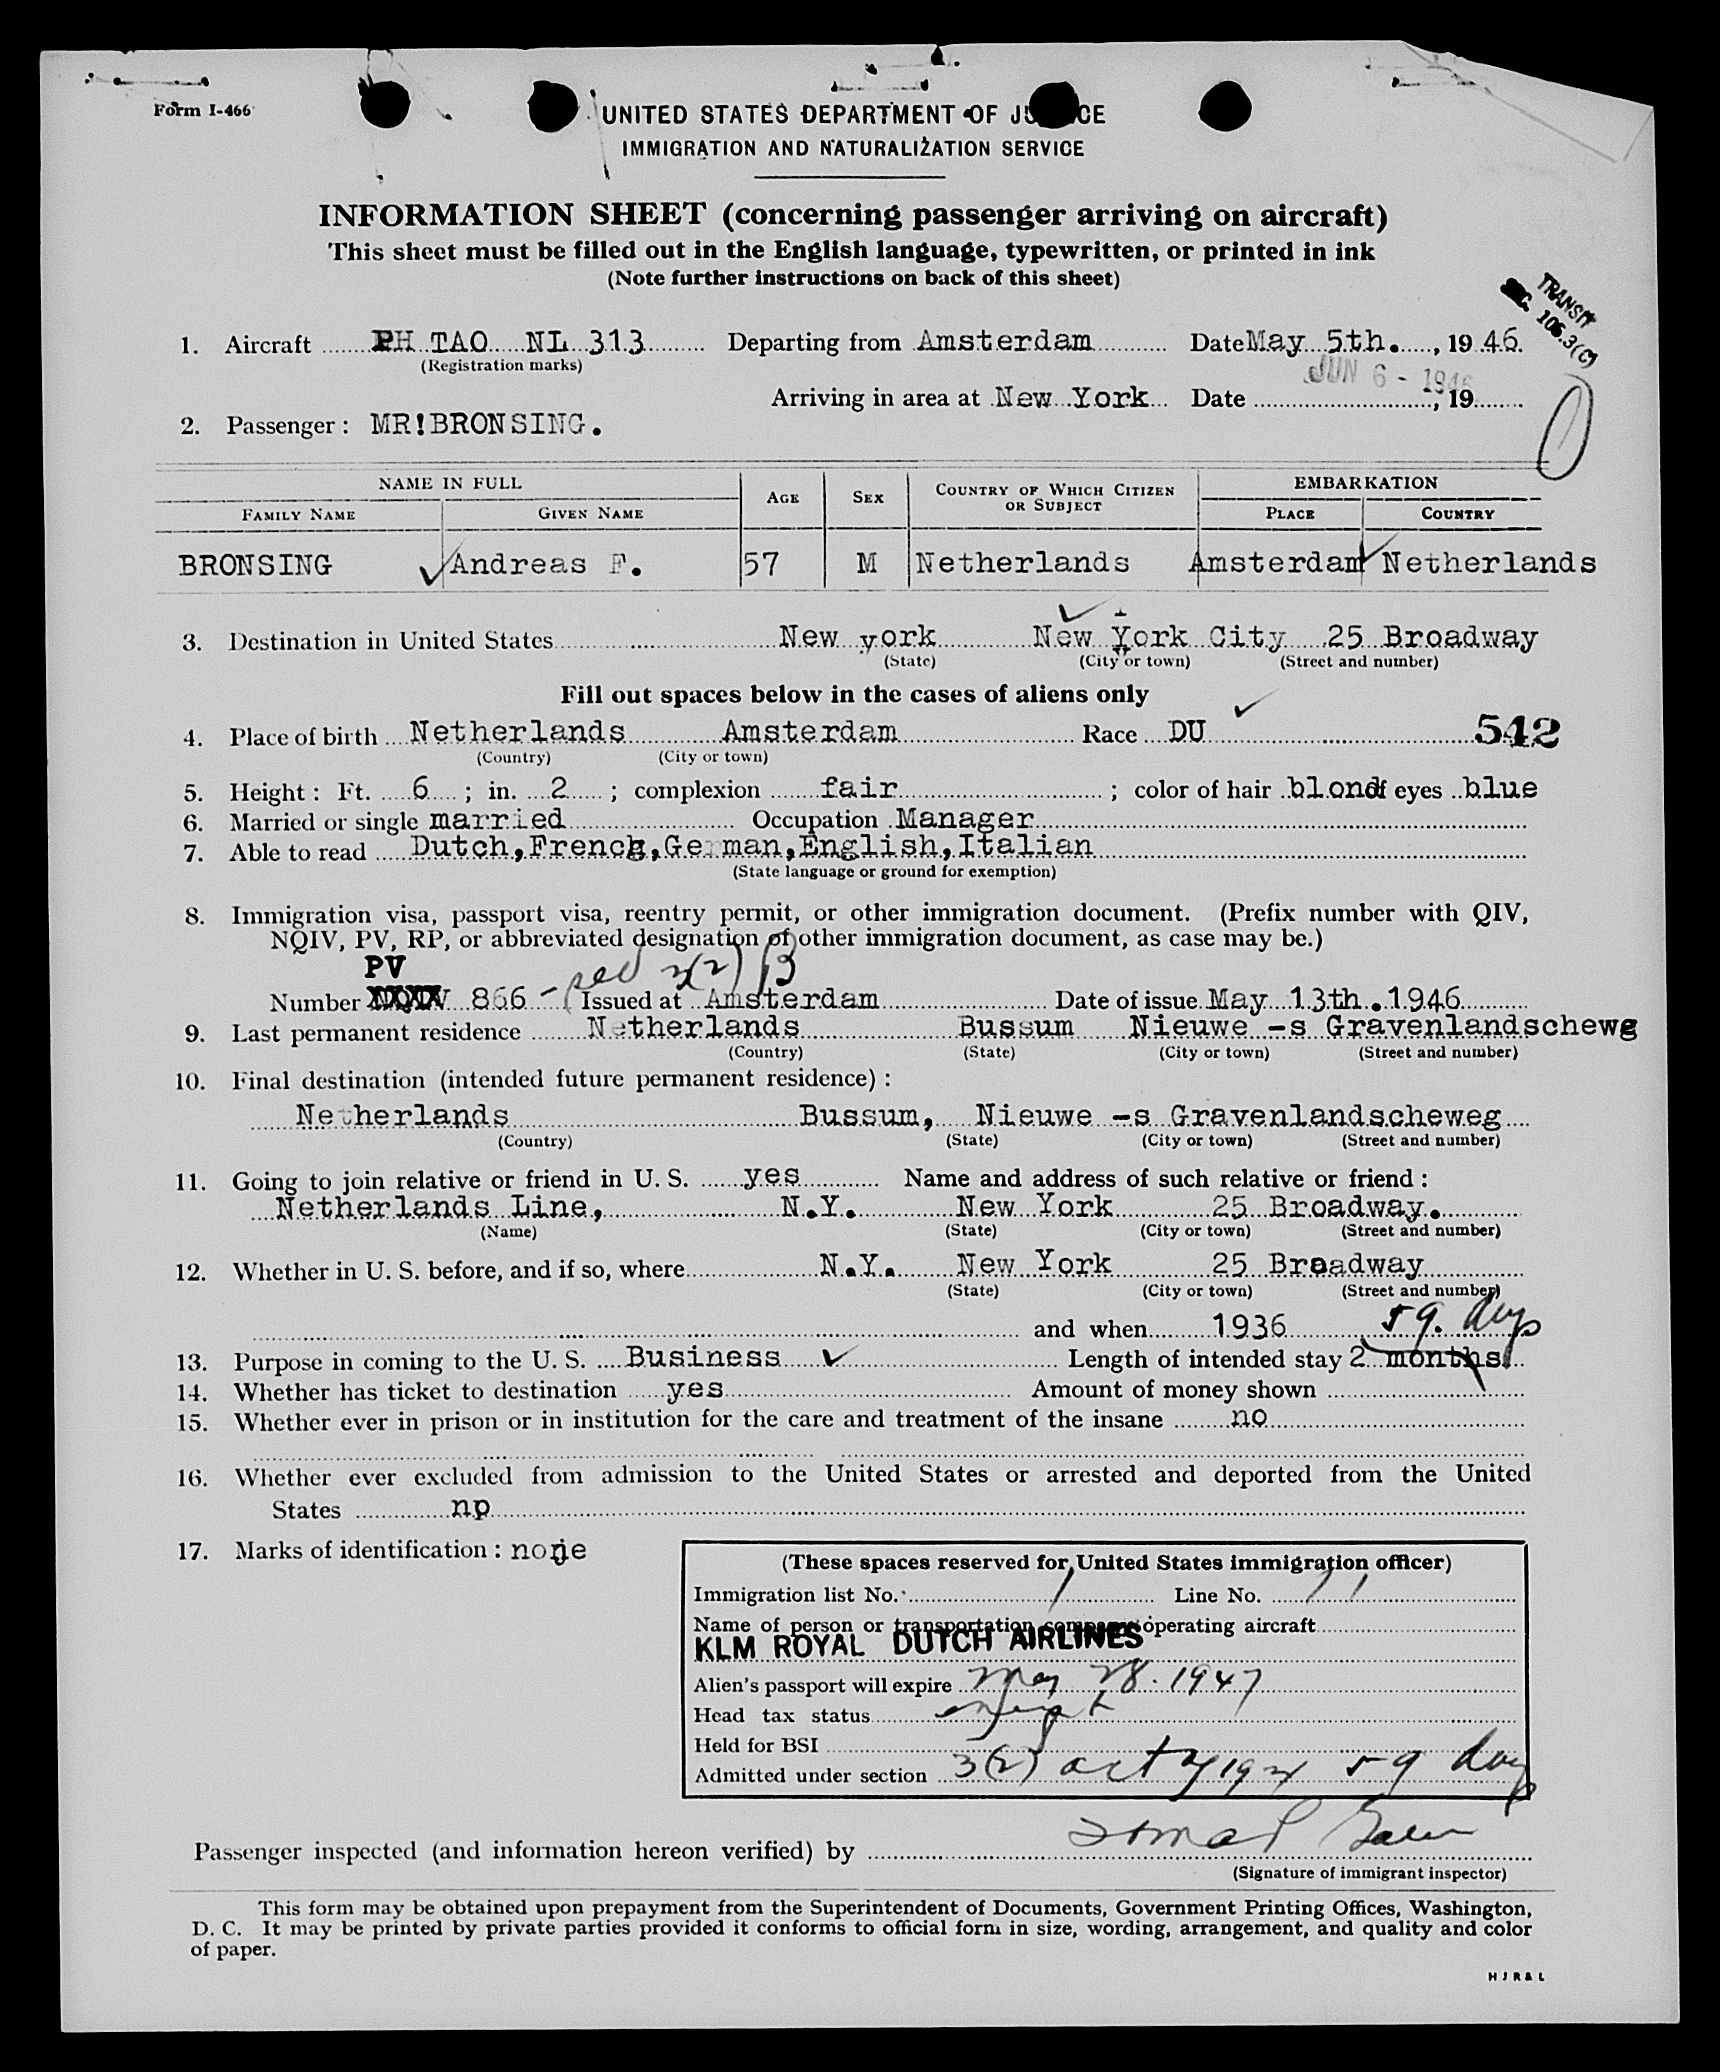 Form I-466
UNITED STATES DEPARTMENT OF JU CE
IMMIGRATION AND NATURALIZATION SERVICE
INFORMATION SHEET (concerning passenger arriving on aircraft)
This sheet must be filled out in the English language, typewritten, or printed in ink
(Note further instructions on back of this sheet)
TRANSIT
SEC. 106.3(C)
1. Aircraft PH TAO NL 313 Departing from Amsterdam Date May 5th. , 19 46.
(Registration marks)
JUN 6 - 1946
Arriving in area at New York Date , 19
2. Passenger : MR!BRONSING.
NAME IN FULL AGE SEX COUNTRY OF WHICH CITIZEN OR SUBJECT EMBARKATION
FAMILY NAME GIVEN NAME PLACE COUNTRY
BRONSING Andreas F. 57 M Netherlands Amsterdam Netherlands
3. Destination in United States New york New York City 25 Broadway
(State) (City or town) (Street and number)
Fill out spaces below in the cases of aliens only
4. Place of birth Netherlands Amsterdam Race DU 542
(Country) (City or town)
5. Height : Ft. 6 ; in. 2 ; complexion fair ; color of hair blond of eyes blue
6. Married or single married Occupation Manager
7. Able to read Dutch,French,German,English,Italian
(State language or ground for exemption)
8. Immigration visa, passport visa, reentry permit, or other immigration document. (Prefix number with QIV,
NQIV, PV, RP, or abbreviated designation of other immigration document, as case may be.)
PV
Number 866 - sec 3(2) B Issued at Amsterdam Date of issue May 13th.1946
9. Last permanent residence Netherlands Bussum Nieuwe -s Gravenlandscheweg
(Country) (State) (City or town) (Street and number)
10. Final destination (intended future permanent residence) :
Netherlands Bussum, Nieuwe -s Gravenlandscheweg
(Country) (State) (City or town) (Street and number)
11. Going to join relative or friend in U. S. yes Name and address of such relative or friend :
Netherlands Line, N.Y. New York 25 Broadway.
(Name) (State) (City or town) (Street and number)
12. Whether in U. S. before, and if so, where N.Y. New York 25 Broadway
(State) (City or town) (Street and number)
and when 1936 59 days
13. Purpose in coming to the U. S. Business Length of intended stay 2 months
14. Whether has ticket to destination yes Amount of money shown
15. Whether ever in prison or in institution for the care and treatment of the insane no
16. Whether ever excluded from admission to the United States or arrested and deported from the United
States no
17. Marks of identification : none
(These spaces reserved for United States immigration officer)
Immigration list No. 1 Line No. 11
Name of person or transportation company operating aircraft
KLM ROYAL DUTCH AIRLINES
Alien's passport will expire May 28. 1947
Head tax status exempt
Held for BSI
Admitted under section 3(2) act of 1924 59 days
Passenger inspected (and information hereon verified) by
(Signature of immigrant inspector)
This form may be obtained upon prepayment from the Superintendent of Documents, Government Printing Offices, Washington,
D. C. It may be printed by private parties provided it conforms to official form in size, wording, arrangement, and quality and color
of paper.
H J R & L